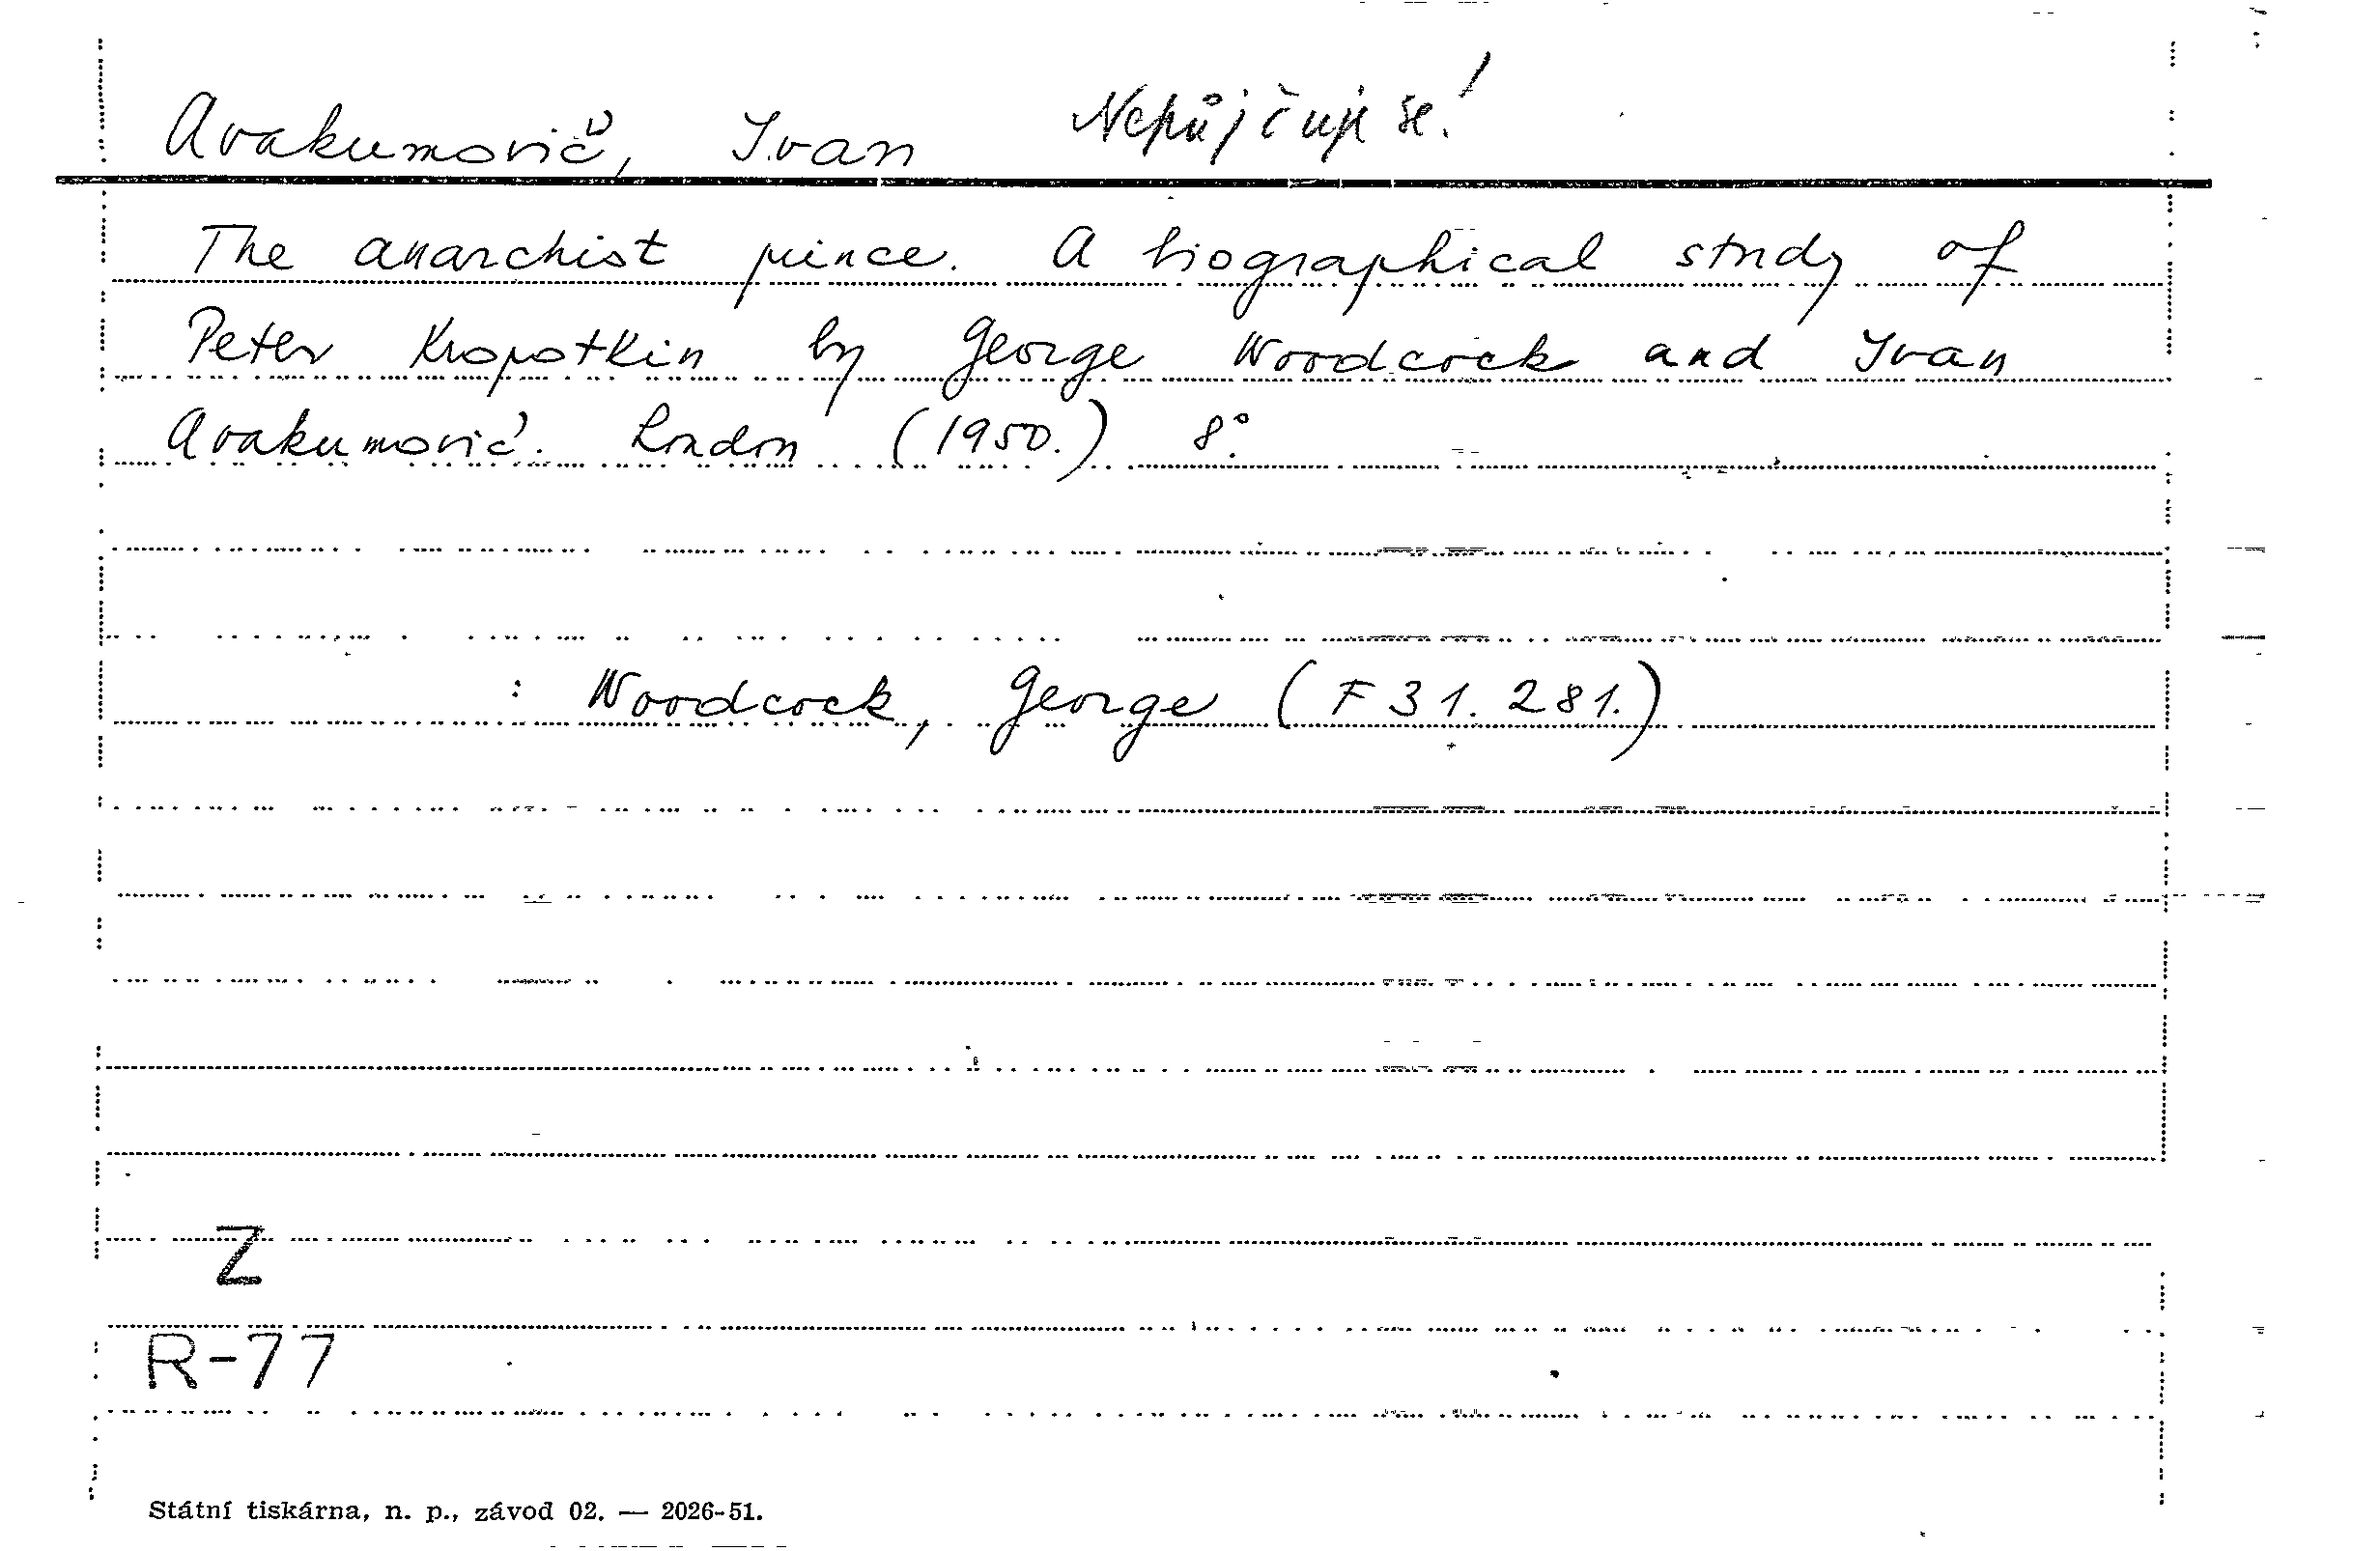 Avakumovič, Ivan Nepůjčuje se!
The anarchist prince. A biographical study of
Peter Kropotkin by George Woodcock and Ivan
Avakumović. London (1950.) 8°.
: Woodcock, George (F 31. 281.)
Z
R-77
Státní tiskárna, n. p., závod 02. — 2026-51.